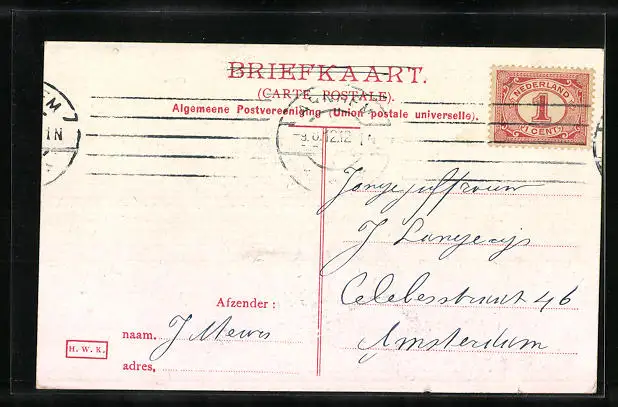 BRIEFKAART.
(CARTE POSTALE).
Algemeene Postvereeniging (Union postale universelle).
NEDERLAND
1
1 CENT
Jongejuffrouw
J Langereijs
Celebesstraat 46
Amsterdam
Afzender:
naam, J Mewis
adres,
H. W. K.